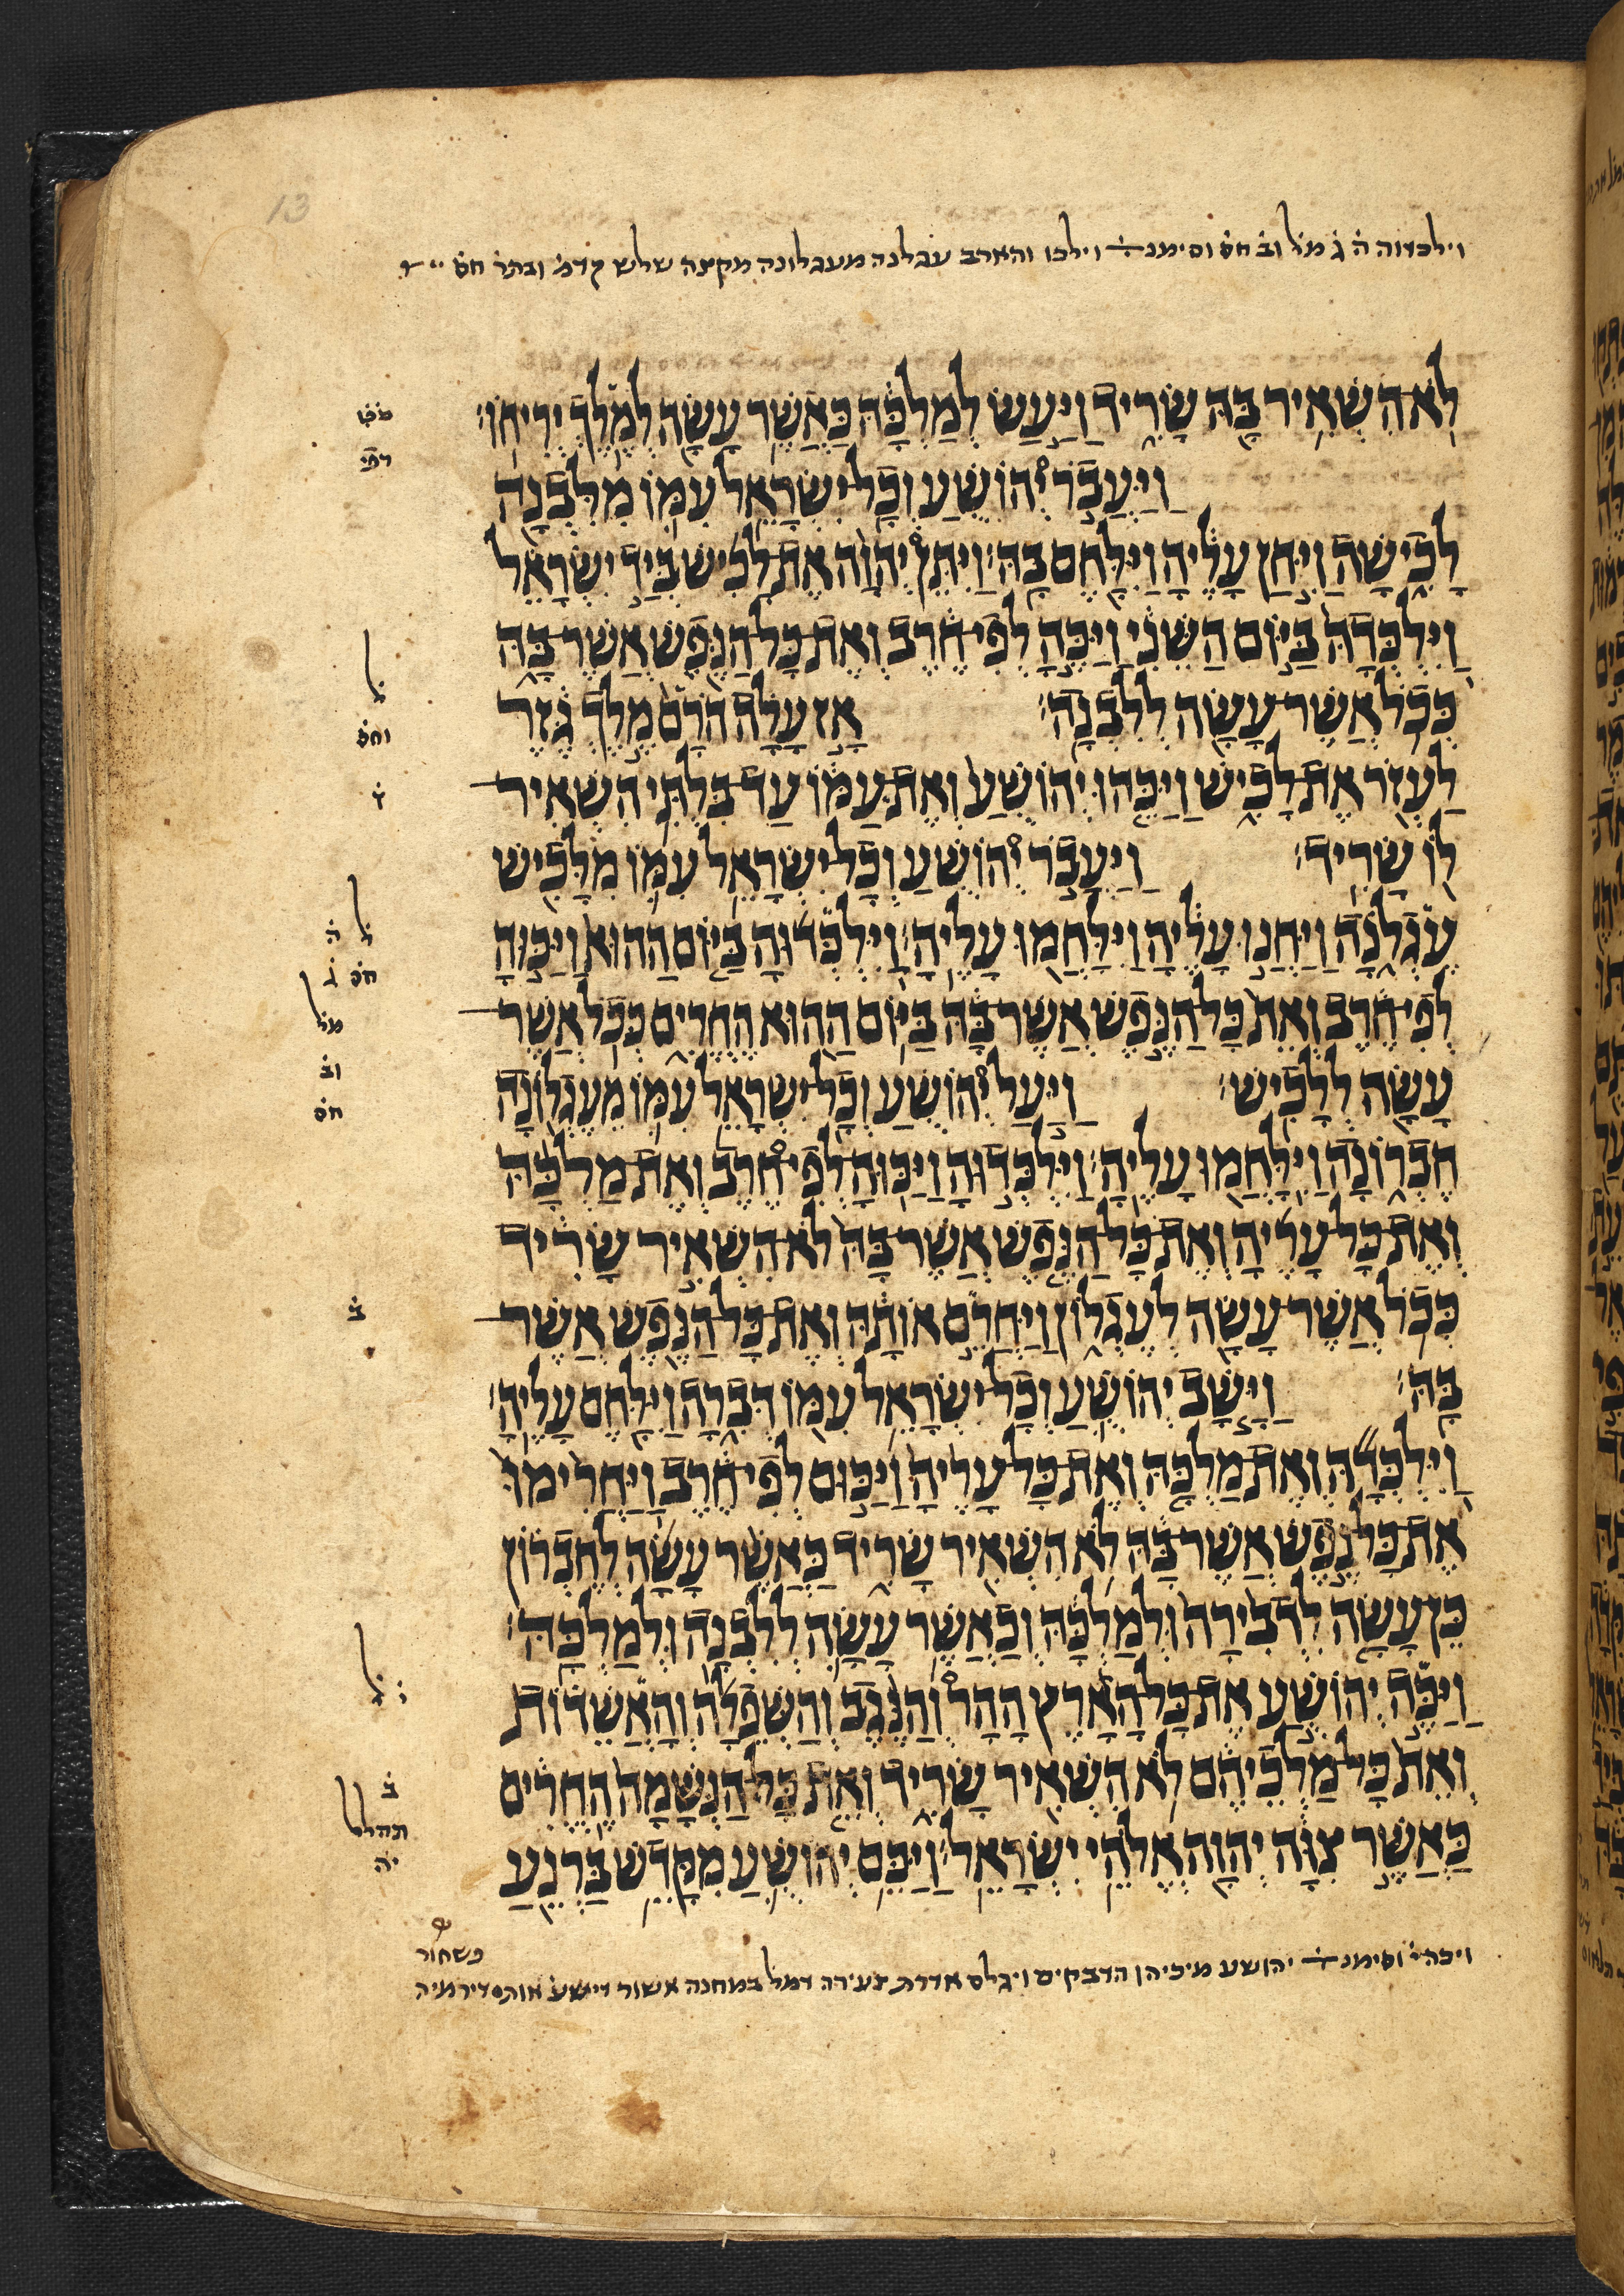 13
וילכדוה ה̇ ג̇ מל̇ וב̇ חס̇ וסימנ̇ וילכו והארב עגלנה מעגלונה מקצה שלש קדמ̇ ובתר̇ חס̇
לֹֽא־הִשְׁאִ֥יר בָּ֖הּ שָׂרִ֑יד וַיַּ֣עַשׂ לְמַלְכָּ֔הּ כַּאֲשֶׁ֥ר עָשָׂ֖ה לְמֶ֥לֶךְ יְרִיחֽוֹ׃
וַיַּעֲבֹ֣ר יְ֠הוֹשֻׁעַ וְכׇל־יִשְׂרָאֵ֥ל עִמּ֛וֹ מִלִּבְנָ֖ה
לָכִ֑ישָׁה וַיִּ֣חַן עָלֶ֔יהָ וַיִּלָּ֖חֶם בָּֽהּ׃ וַיִּתֵּ֨ן יְהֹוָ֤ה אֶת־לָכִישׁ֙ בְּיַ֣ד יִשְׂרָאֵ֔ל
וַֽיִּלְכְּדָהּ֙ בַּיּ֣וֹם הַשֵּׁנִ֔י וַיַּכֶּ֣הָ לְפִי־חֶ֔רֶב וְאֶת־כׇּל־הַנֶּ֖פֶשׁ אֲשֶׁר־בָּ֑הּ
כְּכֹ֥ל אֲשֶׁר־עָשָׂ֖ה לְלִבְנָֽה׃ אָ֣ז עָלָ֗ה הֹרָם֙ מֶ֣לֶךְ גֶּ֔זֶר
לַעְזֹ֖ר אֶת־לָכִ֑ישׁ וַיַּכֵּ֤הוּ יְהוֹשֻׁ֙עַ֙ וְאֶת־עַמּ֔וֹ עַד־בִּלְתִּ֥י הִשְׁאִֽיר־
ל֖וֹ שָׂרִֽיד׃ וַיַּעֲבֹ֣ר יְ֠הוֹשֻׁעַ וְכׇל־יִשְׂרָאֵ֥ל עִמּ֛וֹ מִלָּכִ֖ישׁ
עֶגְלֹ֑נָה וַיַּחֲנ֣וּ עָלֶ֔יהָ וַיִּֽלָּחֲמ֖וּ עָלֶֽיהָ׃ וַֽיִּלְכְּד֜וּהָ בַּיּ֤וֹם הַהוּא֙ וַיַּכּ֣וּהָ
לְפִי־חֶ֔רֶב וְאֵת֙ כׇּל־הַנֶּ֣פֶשׁ אֲשֶׁר־בָּ֔הּ בַּיּ֥וֹם הַה֖וּא הֶחֱרִ֑ים כְּכֹ֥ל אֲשֶׁר־
עָשָׂ֖ה לְלָכִֽישׁ׃ וַיַּ֣עַל יְ֠הוֹשֻׁעַ וְכׇל־יִשְׂרָאֵ֥ל עִמּ֛וֹ מֵעֶגְל֖וֹנָה
חֶבְר֑וֹנָה וַיִּֽלָּחֲמ֖וּ עָלֶֽיהָ׃ וַיִּלְכְּד֣וּהָ וַיַּכּֽוּהָ־לְפִי־חֶ֠רֶב וְאֶת־מַלְכָּ֨הּ
וְאֶת־כׇּל־עָרֶ֜יהָ וְאֶת־כׇּל־הַנֶּ֤פֶשׁ אֲשֶׁר־בָּהּ֙ לֹא־הִשְׁאִ֣יר שָׂרִ֔יד
כְּכֹ֥ל אֲשֶׁר־עָשָׂ֖ה לְעֶגְל֑וֹן וַיַּחֲרֵ֣ם אוֹתָ֔הּ וְאֶת־כׇּל־הַנֶּ֖פֶשׁ אֲשֶׁר־
בָּֽהּ׃ וַיָּ֧שׇׁב יְהוֹשֻׁ֛עַ וְכׇל־יִשְׂרָאֵ֥ל עִמּ֖וֹ דְּבִ֑רָה וַיִּלָּ֖חֶם עָלֶֽיהָ׃
וַֽיִּלְכְּדָ֞הּ וְאֶת־מַלְכָּ֤הּ וְאֶת־כׇּל־עָרֶ֙יהָ֙ וַיַּכּ֣וּם לְפִי־חֶ֔רֶב וַיַּחֲרִ֙ימוּ֙
אֶת־כׇּל־נֶ֣פֶשׁ אֲשֶׁר־בָּ֔הּ לֹ֥א הִשְׁאִ֖יר שָׂרִ֑יד כַּאֲשֶׁ֨ר עָשָׂ֜ה לְחֶבְר֗וֹן
כֵּן־עָשָׂ֤ה לִדְבִ֙רָה֙ וּלְמַלְכָּ֔הּ וְכַאֲשֶׁ֥ר עָשָׂ֛ה לְלִבְנָ֖ה וּלְמַלְכָּֽהּ׃
וַיַּכֶּ֣ה יְהוֹשֻׁ֣עַ אֶת־כׇּל־הָאָ֡רֶץ הָהָר֩ וְהַנֶּ֨גֶב וְהַשְּׁפֵלָ֜ה וְהָאֲשֵׁד֗וֹת
וְאֵת֙ כׇּל־מַלְכֵיהֶ֔ם לֹ֥א הִשְׁאִ֖יר שָׂרִ֑יד וְאֵ֤ת כׇּל־הַנְּשָׁמָה֙ הֶחֱרִ֔ים
כַּאֲשֶׁ֣ר צִוָּ֔ה יְהֹוָ֖ה אֱלֹהֵ֥י יִשְׂרָאֵֽל׃ וַיַּכֵּ֧ם יְהוֹשֻׁ֛עַ מִקָּדֵ֥שׁ בַּרְנֵ֖עַ
ל̇
וחס̇
ז̇
ל̇ ה̇
חס̇ ג̇
מל̇
וב̇
חס̇
ב̇
ל̇ ו̇
ב̇
יה̇
פשחור
ויכה י̇ וסימנ̇ יהושע מיכיהו הדבקים ויגלם אדרת צעירה דמל̇ במחנה אשור דישע̇ אותו דירמיה